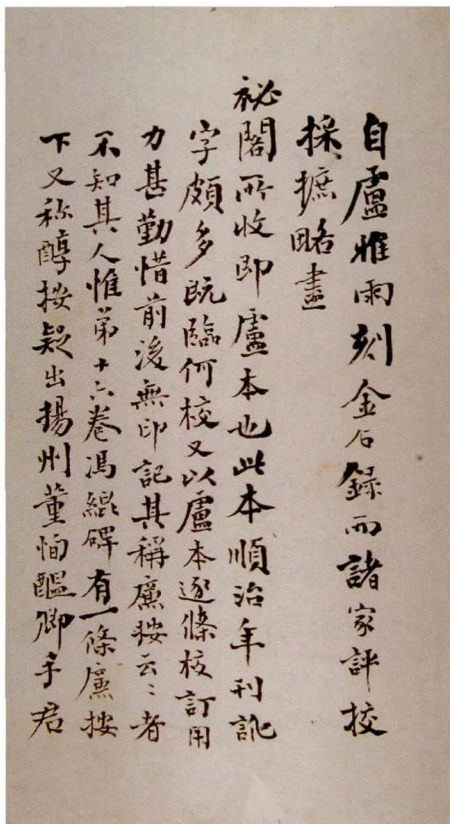 自盧雅雨刻金石錄而諸家評校
採摭略盡
祕閣所收即盧本也此本順治年刊訛
字頗多既臨何校又以盧本逐條校訂用
力甚勤惜前後無印記其稱廉按云〻者
不知其人惟第十六卷馮緄碑有一條廉按
下又稱醇按疑出揚州董恂醖卿手君